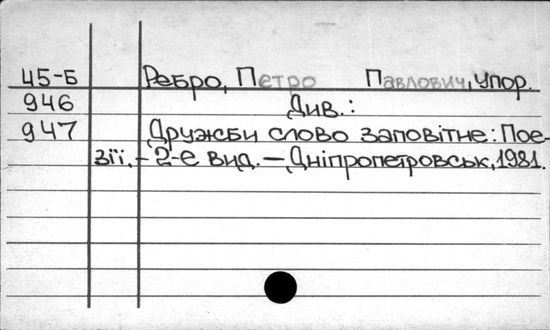 45-Б Ребро, Петро Павлович, упор.
946 Див.:
947 Дружби слово заповітне: Пое-
зії. – 2-е вид. – Дніпропетровськ, 1981.